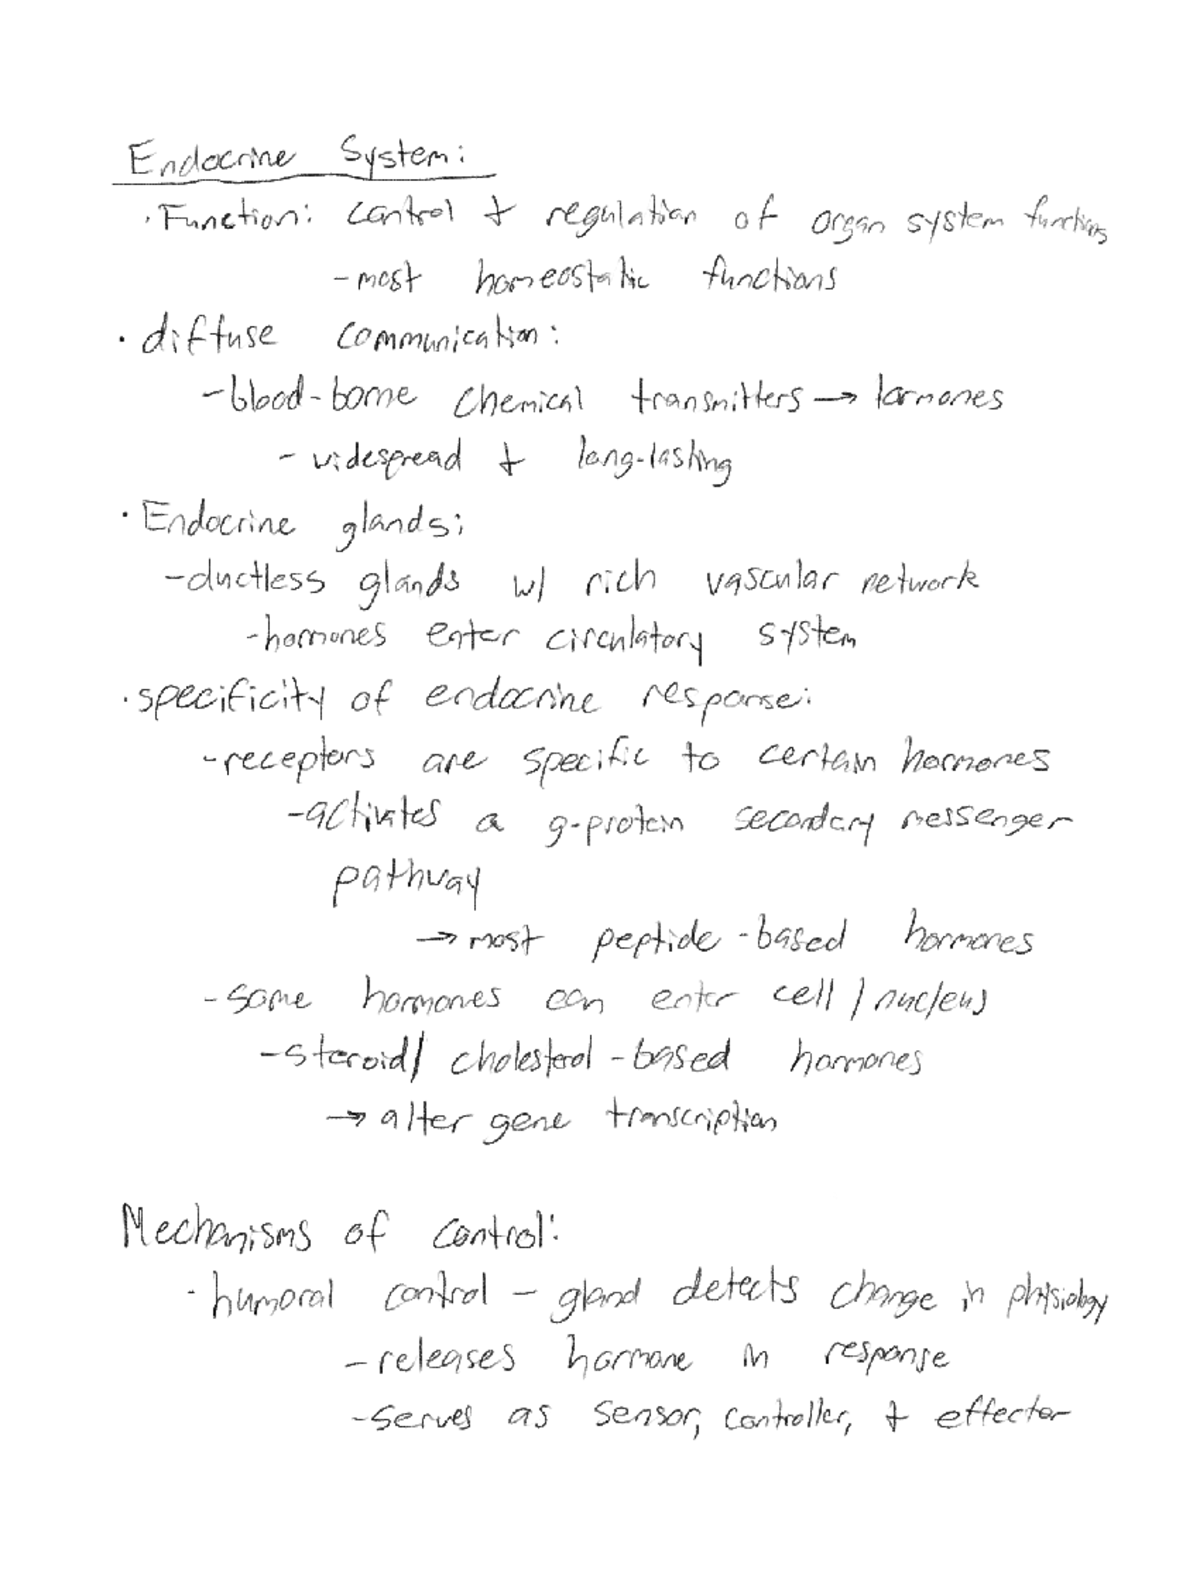 Endocrine System:
· Function: control + regulation of organ system functions
- most homeostatic functions
· diffuse communication:
- blood-borne chemical transmitters → hormones
- widespread + long-lasting
· Endocrine glands:
- ductless glands w/ rich vascular network
- hormones enter circulatory system
· specificity of endocrine response:
- receptors are specific to certain hormones
- activates a g-protein secondary messenger
pathway
→ most peptide-based hormones
- some hormones can enter cell / nucleus
- steroid / cholesterol-based hormones
→ alter gene transcription
Mechanisms of control:
· humoral control - gland detects change in physiology
- releases hormone in response
- serves as sensor, controller, + effector